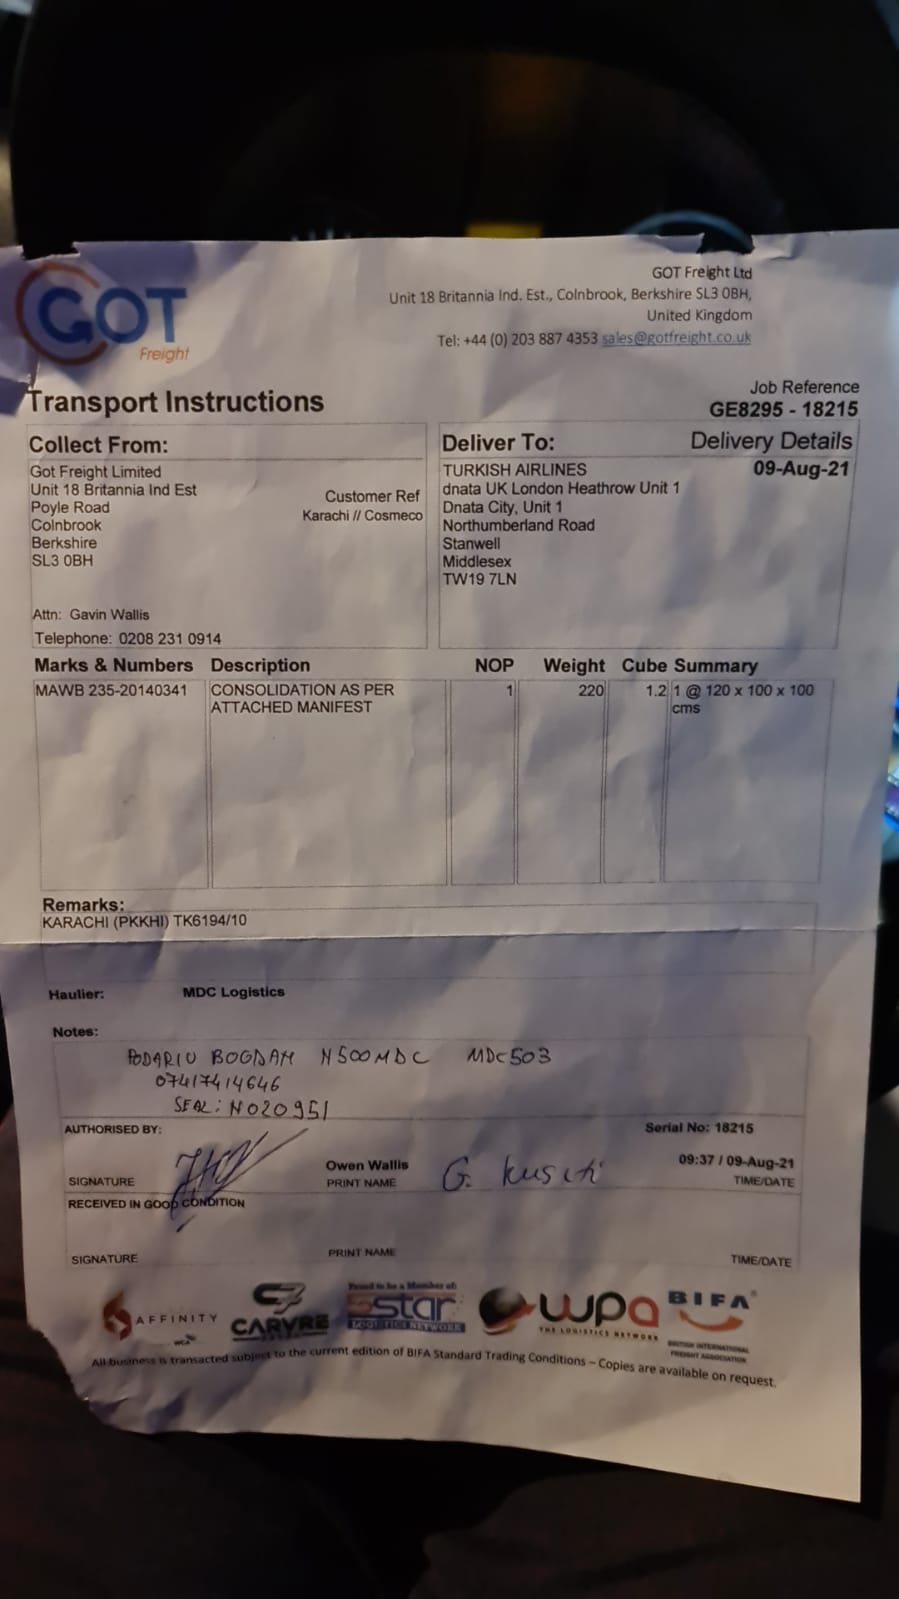 GOT
Freight
GOT Freight Ltd
Unit 18 Britannia Ind. Est., Colnbrook, Berkshire SL3 0BH,
United Kingdom
Tel: +44 (0) 203 887 4353 sales@gotfreight.co.uk
Transport Instructions
Job Reference
GE8295 - 18215
Collect From:
Got Freight Limited
Unit 18 Britannia Ind Est
Poyle Road
Colnbrook
Berkshire
SL3 0BH
Customer Ref
Karachi // Cosmeco
Attn: Gavin Wallis
Telephone: 0208 231 0914
Deliver To:
TURKISH AIRLINES
dnata UK London Heathrow Unit 1
Dnata City, Unit 1
Northumberland Road
Stanwell
Middlesex
TW19 7LN
Delivery Details
09-Aug-21
Marks & Numbers Description NOP Weight Cube Summary
MAWB 235-20140341 CONSOLIDATION AS PER 1 220 1.2 1 @ 120 x 100 x 100
ATTACHED MANIFEST cms
Remarks:
KARACHI (PKKHI) TK6194/10
Haulier: MDC Logistics
Notes:
PODARIU BOGDAN N500MDC MDC503
07417414646
SEAL: N020951
AUTHORISED BY: Serial No: 18215
Owen Wallis 09:37 / 09-Aug-21
SIGNATURE PRINT NAME G. TIME/DATE
RECEIVED IN GOOD CONDITION
SIGNATURE PRINT NAME TIME/DATE
AFFINITY
WCA
CARVRE
Proud to be a Member of:
5star
LOGISTICS NETWORK
wpa
THE LOGISTICS NETWORK
BIFA
BRITISH INTERNATIONAL
FREIGHT ASSOCIATION
All business is transacted subject to the current edition of BIFA Standard Trading Conditions – Copies are available on request.